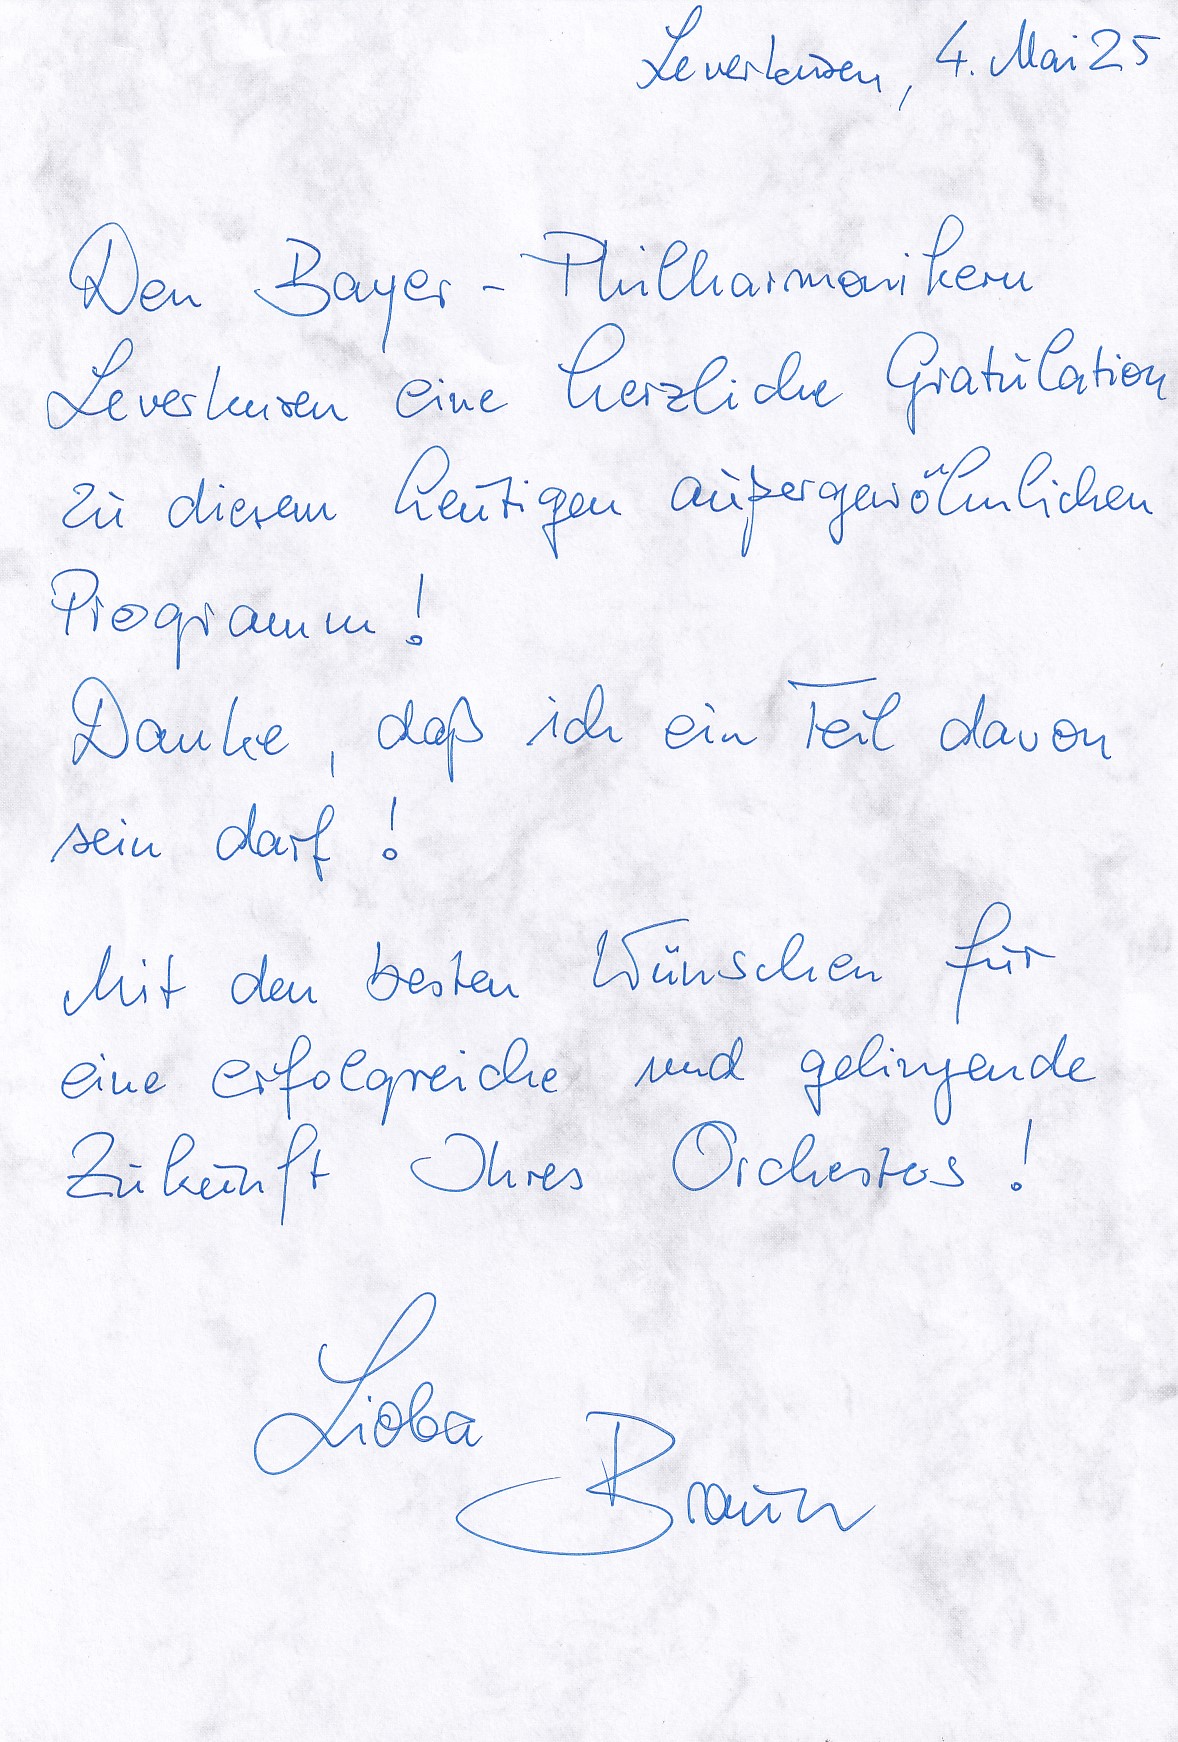 Leverkusen, 4. Mai 25
Den Bayer-Philharmonikern
Leverkusen eine herzliche Gratulation
zu diesem heutigen außergewöhnlichen
Programm!
Danke, daß ich ein Teil davon
sein darf!
Mit den besten Wünschen für
eine erfolgreiche und gelingende
Zukunft Ihres Orchesters!
Lioba
Braun